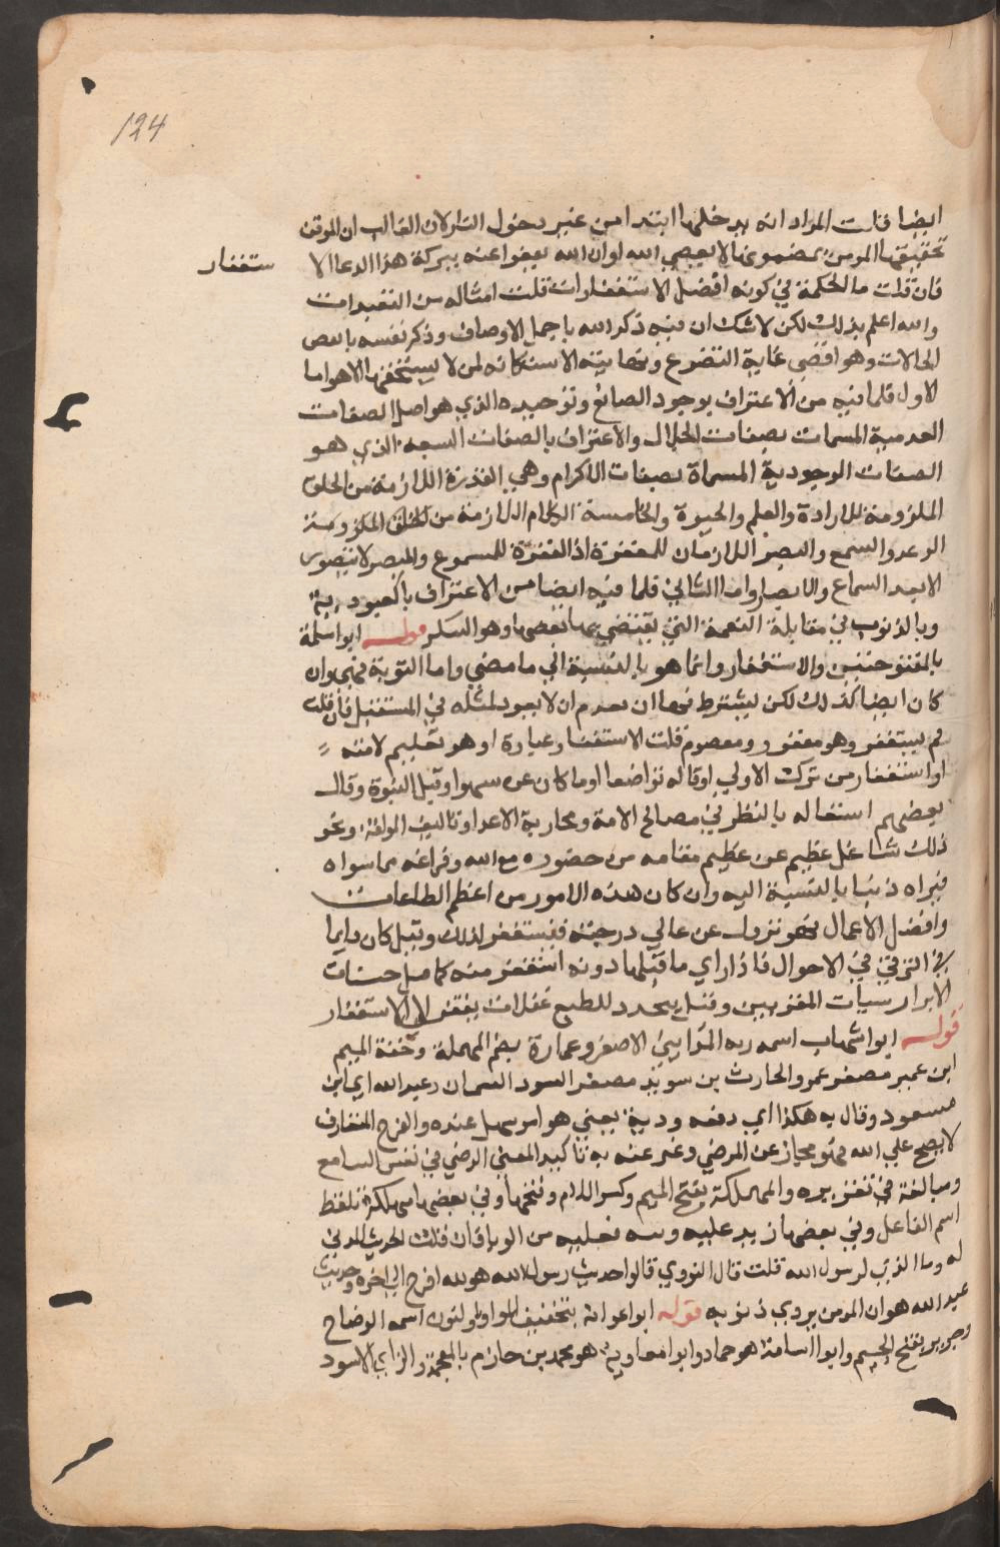 124
ايضا قلت المراد انه يدخلها ابتدا من غير دخول النار لان الغالب ان الموقن
بحقيقتها المومن بمضمونها لا يعصي الله او ان الله يعفوا عنه ببركة هذا الدعا الا
ستغفار
فان قلت ما الحكمة في كونه افضل الاستغفارات قلت امثاله من التعبدات
والله اعلم بذلك لكن لا شك ان فيه ذكر الله باجمل الاوصاف وذكر نفسه بانقص
الحالات وهو اقصى غاية التضرع ونهاية الاستكانه لمن لا يستحقها الا هو اما
الاول فلما فيه من الاعتراف بوجود الصانع وتوحيده الذي هو اصل الصفات
العدمية المسمات بصفات الجلال والاعتراف بالصفات السبعه الذي هو
الصفات الوجودية المسماة بصفات الاكرام وهي القدرة اللازمة من الخلق
الملزومة للارادة والعلم والحيوة والخامسة الكلام اللازمة من الخلق الملزومة
الوعد والسمع والبصر اللازمان للمغفرة اذ المغفرة للمسموع والمبصر لا يتصور
الا بعد السماع والابصار واما الثاني فلما فيه ايضا من الاعتراف بالعبودية
وبالذنوب في مقابلة النعمة التي تقتضي نقيضها وهو الشكر قوله ابو اسلمة
بالمفتوحتين والاستغفار وانما هو بالنسبة الى ما مضى واما التوبة فهي وان
كان ايضا كذلك لكن يشترط فيها ان يعزم ان لا يعود لمثله في المستقبل فان قلت
لم يستغفر وهو مغفور ومعصوم قلت الاستغفار عبادة او هو تعليم لامته
او استغفار من ترك الاولى او قاله تواضعا او ما كان عن سهو او قبل النبوة وقال
بعضهم اشتغاله بالنظر في مصالح الامة ومحاربة الاعدا وتاليف المولفة ونحو
ذلك شاغل عظيم عن عظيم مقامه من حضوره مع الله وفراغه مما سواه
فيراه ذنبا بالنسبة اليه وان كان هذه الامور من اعظم الطاعات
وافضل الاعمال فهو نزول عن عالي درجته فيستغفر لذلك وقيل كان دايما
في الترقي في الاحوال فاذا راي ما قبلها دونه استغفر منه كما قيل حسنات
الابرار سيات المقربين وقيل يتجدد للطبع غفلات يفتقر الى الاستغفار
قوله ابو شهاب اسمه ربه المدايني الاصغر وعمارة بضم المهملة وخفة الميم
ابن عمير مصغر عمرو الحارث بن سويد مصغر السود السمان وعبد الله اي ابن
مسعود وقال به هكذا اي دفعه وديه يعني هو امر سهل عنده والفرح المتعارف
لا يصح على الله فهو مجاز عن الرضى وعبر عنه به تاكيد المعنى الرضى في نفس السامع
ومبالغة في تقريره والمهلكة بفتح الميم وكسر اللام وفتحها وفي بعضها مهلكة بلفظ
اسم الفاعل وفي بعضها زيد عليه وبيه فعليه من الوبا فان قلت الحديث الذي
له وما الذي لرسول الله قلت قال النووي قالوا حديث رسول الله هو لله افرح الى اخره وحديث
عبد الله هو ان المومن يروي ذنوبه قوله ابو اعوانه بتخفيف الواو والنون اسمه الوضاح
وجرير بفتح الجيم وابو اسامة هو حماد وابو معاوية هو محمد بن حازم بالمعجمة والزاي الاسود